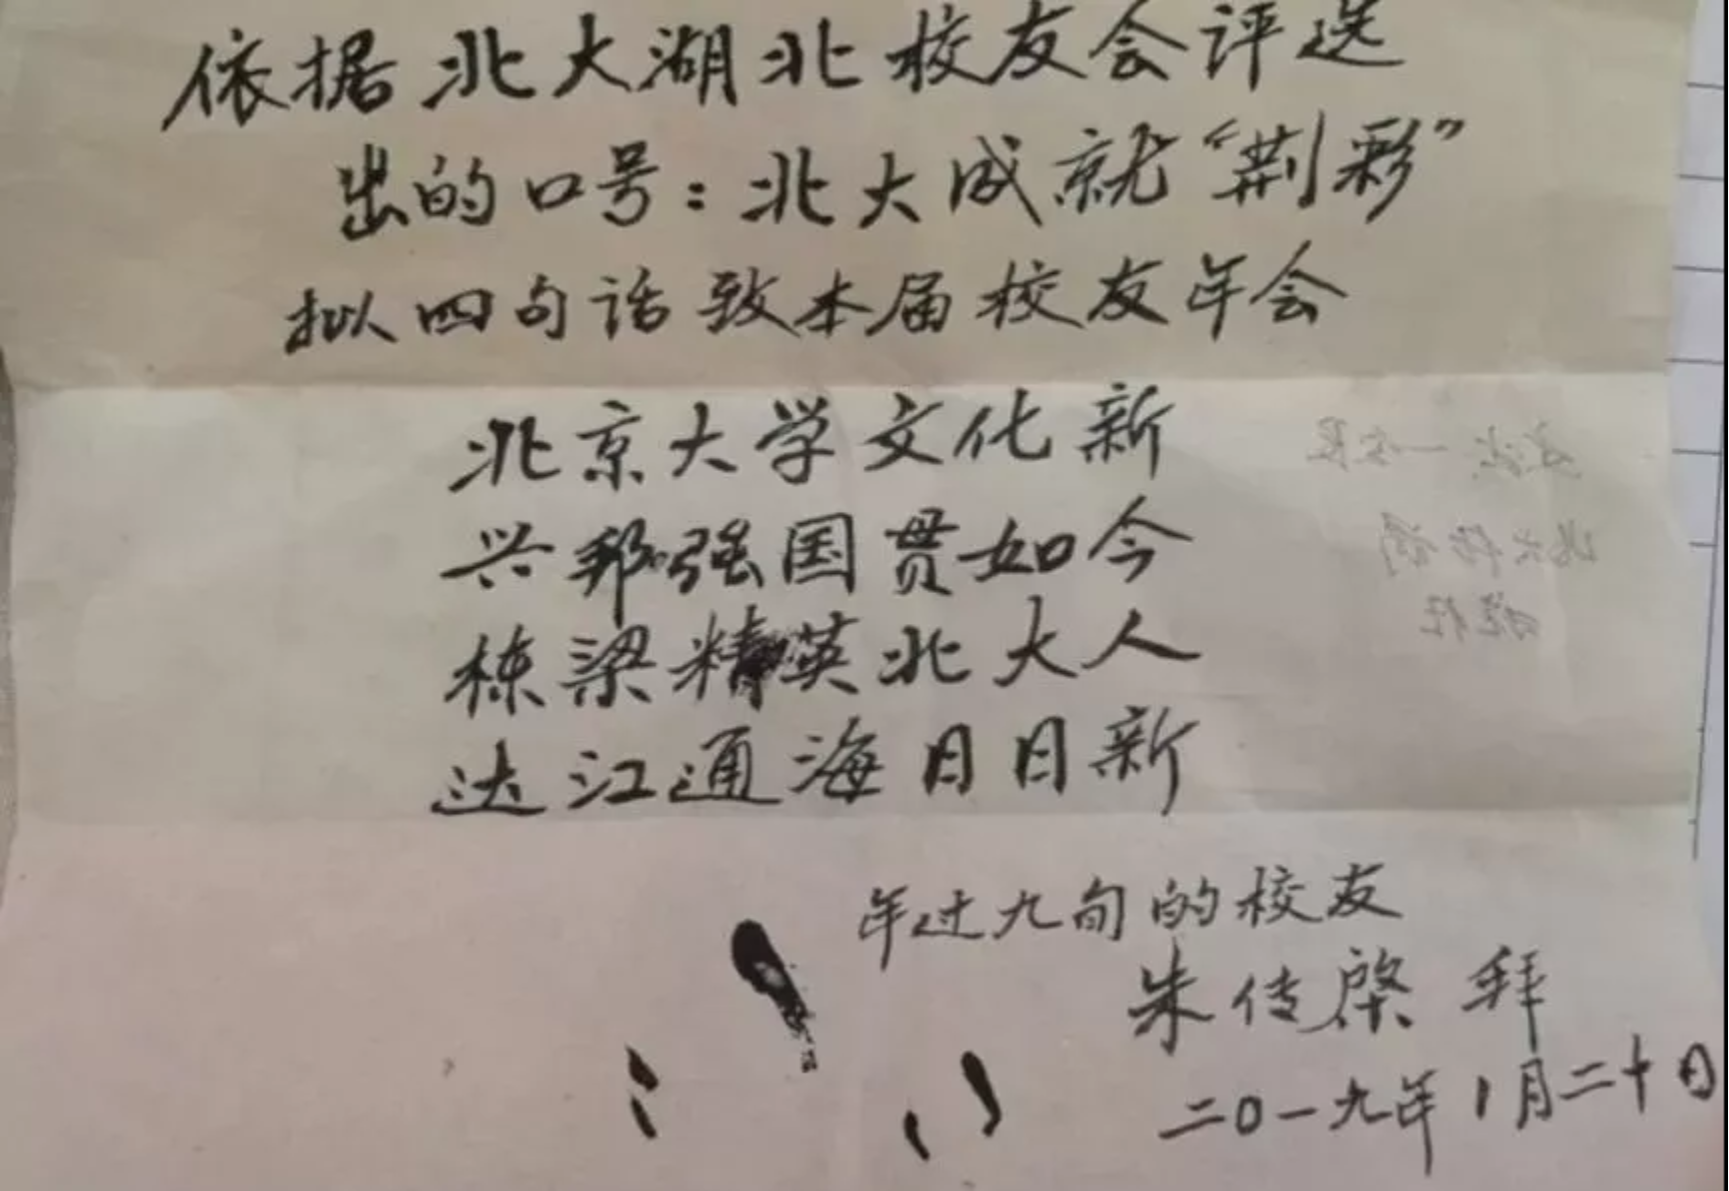 依据北大湖北校友会评选
出的口号：北大成就“荆彩”
拟四句话致本届校友年会
北京大学文化新
兴邦强国贯如今
栋梁精英北大人
达江通海日日新
年过九旬的校友
朱传棨拜
二〇一九年1月二十日